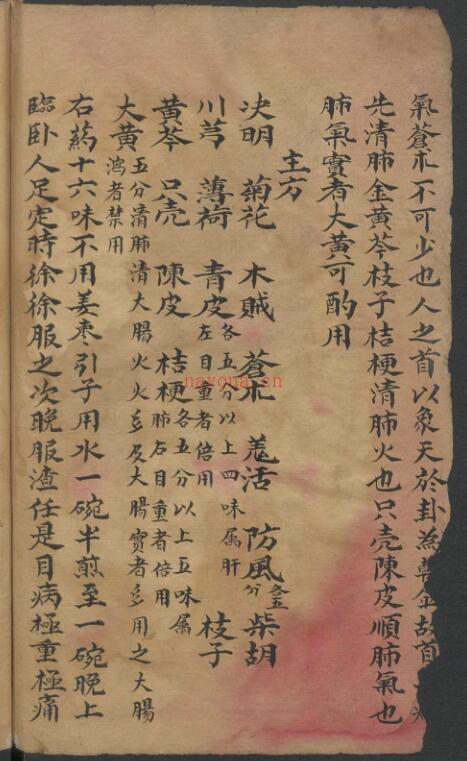 氣蒼朮不可少也人之首以象天於卦為乾金故首
先清肺金黃芩枝子桔梗清肺火也只壳陳皮順肺氣也
肺氣實者大黃可酌用
主方
决明 菊花 木賊 蒼朮 羗活 防風 各五分 柴胡
川芎 薄荷 青皮 各五分以上四味属肝左目重者倍用 枝子
黃芩 只壳 陳皮 桔梗 各五分以上五味属肺右目重者倍用
大黃 五分清肺清大腸火火多及大腸實者多用之大腸鴻者禁用
右藥十六味不用姜枣引子用水一碗半煎至一碗晚上
臨卧人足定時徐徐服之次晚服渣任是目病極重極痛
nayona.cn